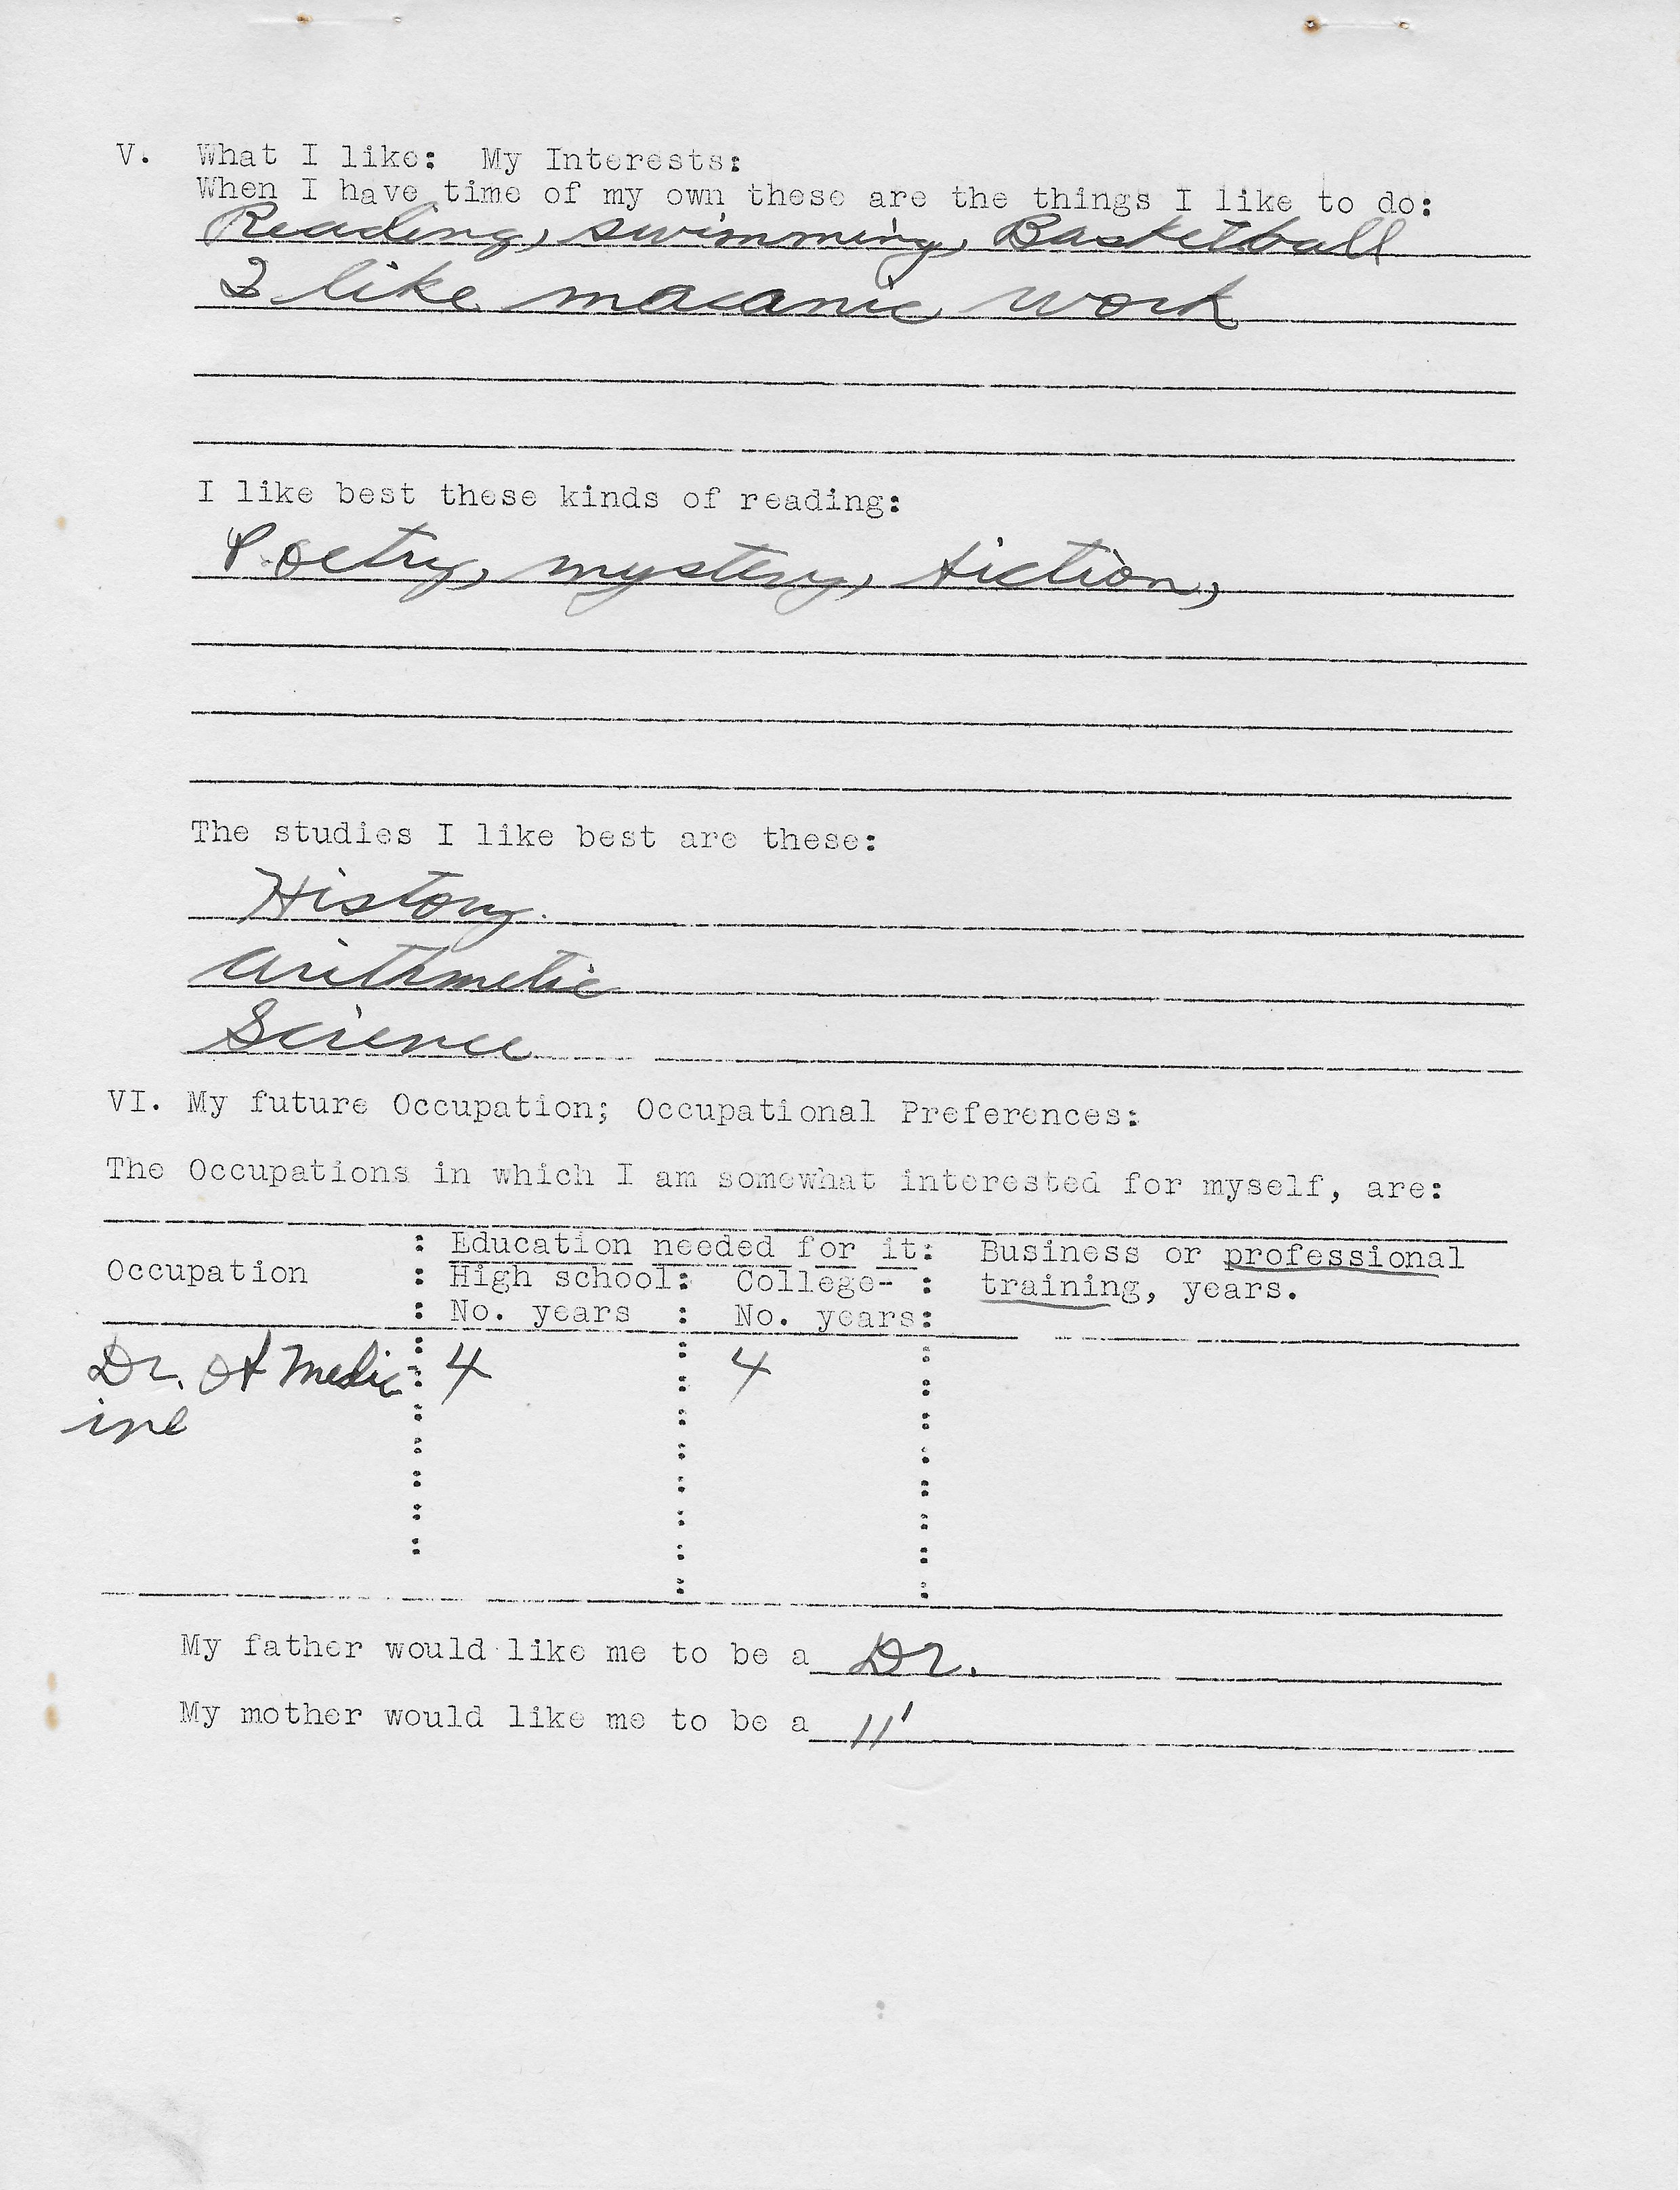 V. What I like: My Interests:
When I have time of my own these are the things I like to do:
Reading, swimming, Basketball
I like macanic work
I like best these kinds of reading:
Poetry, mystery, fiction,
The studies I like best are these:
History.
Arithmetic
Science
VI. My future Occupation; Occupational Preferences:
The Occupations in which I am somewhat interested for myself, are:
: Education needed for it: Business or professional
Occupation : High school: College- : training, years.
: No. years : No. years:
Dr. of Medic : 4 : 4 :
ine
My father would like me to be a Dr.
My mother would like me to be a 11'